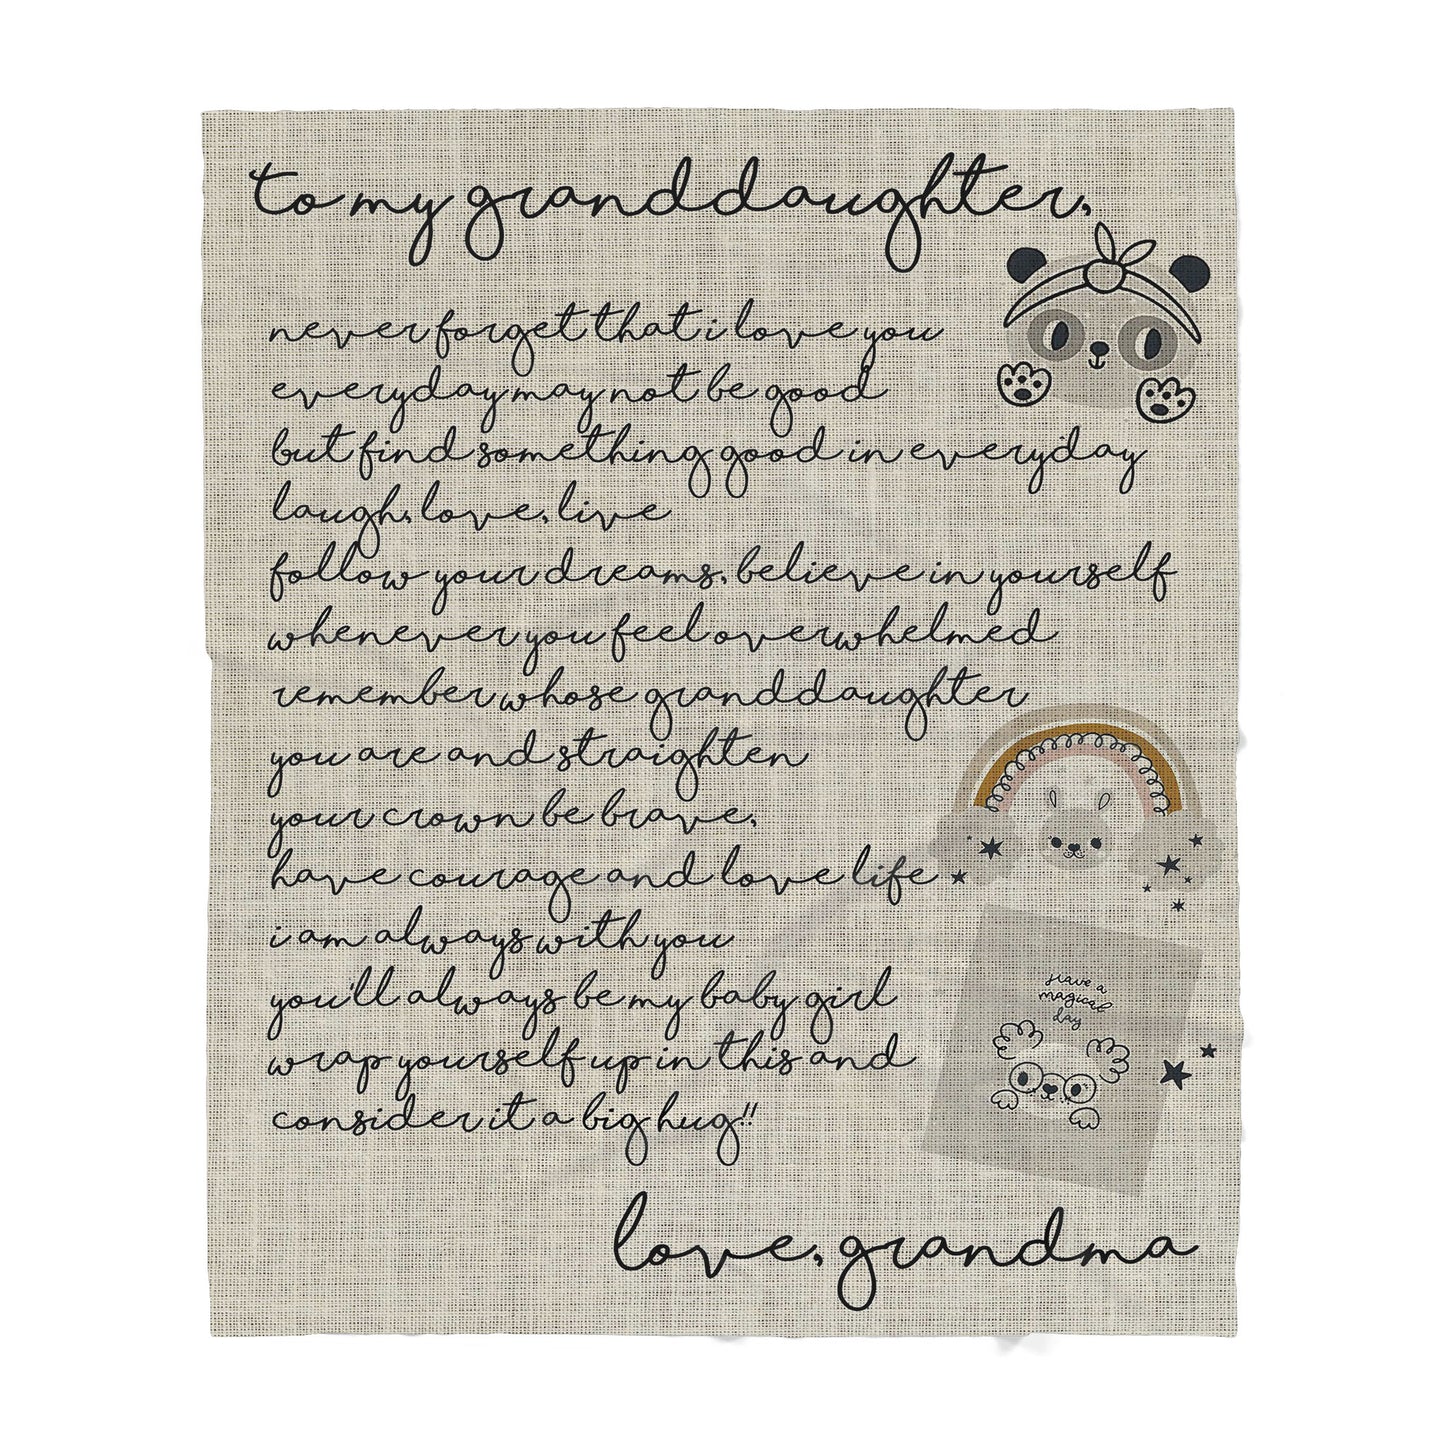 to my granddaughter,
never forget that i love you
everyday may not be good
but find something good in everyday
laugh, love, live
follow your dreams, believe in yourself
whenever you feel overwhelmed
remember whose granddaughter
you are and straighten
your crown be brave,
have courage and love life
i am always with you
you'll always be my baby girl
wrap yourself up in this and
consider it a big hug!!
Have a
magical
day
love, grandma